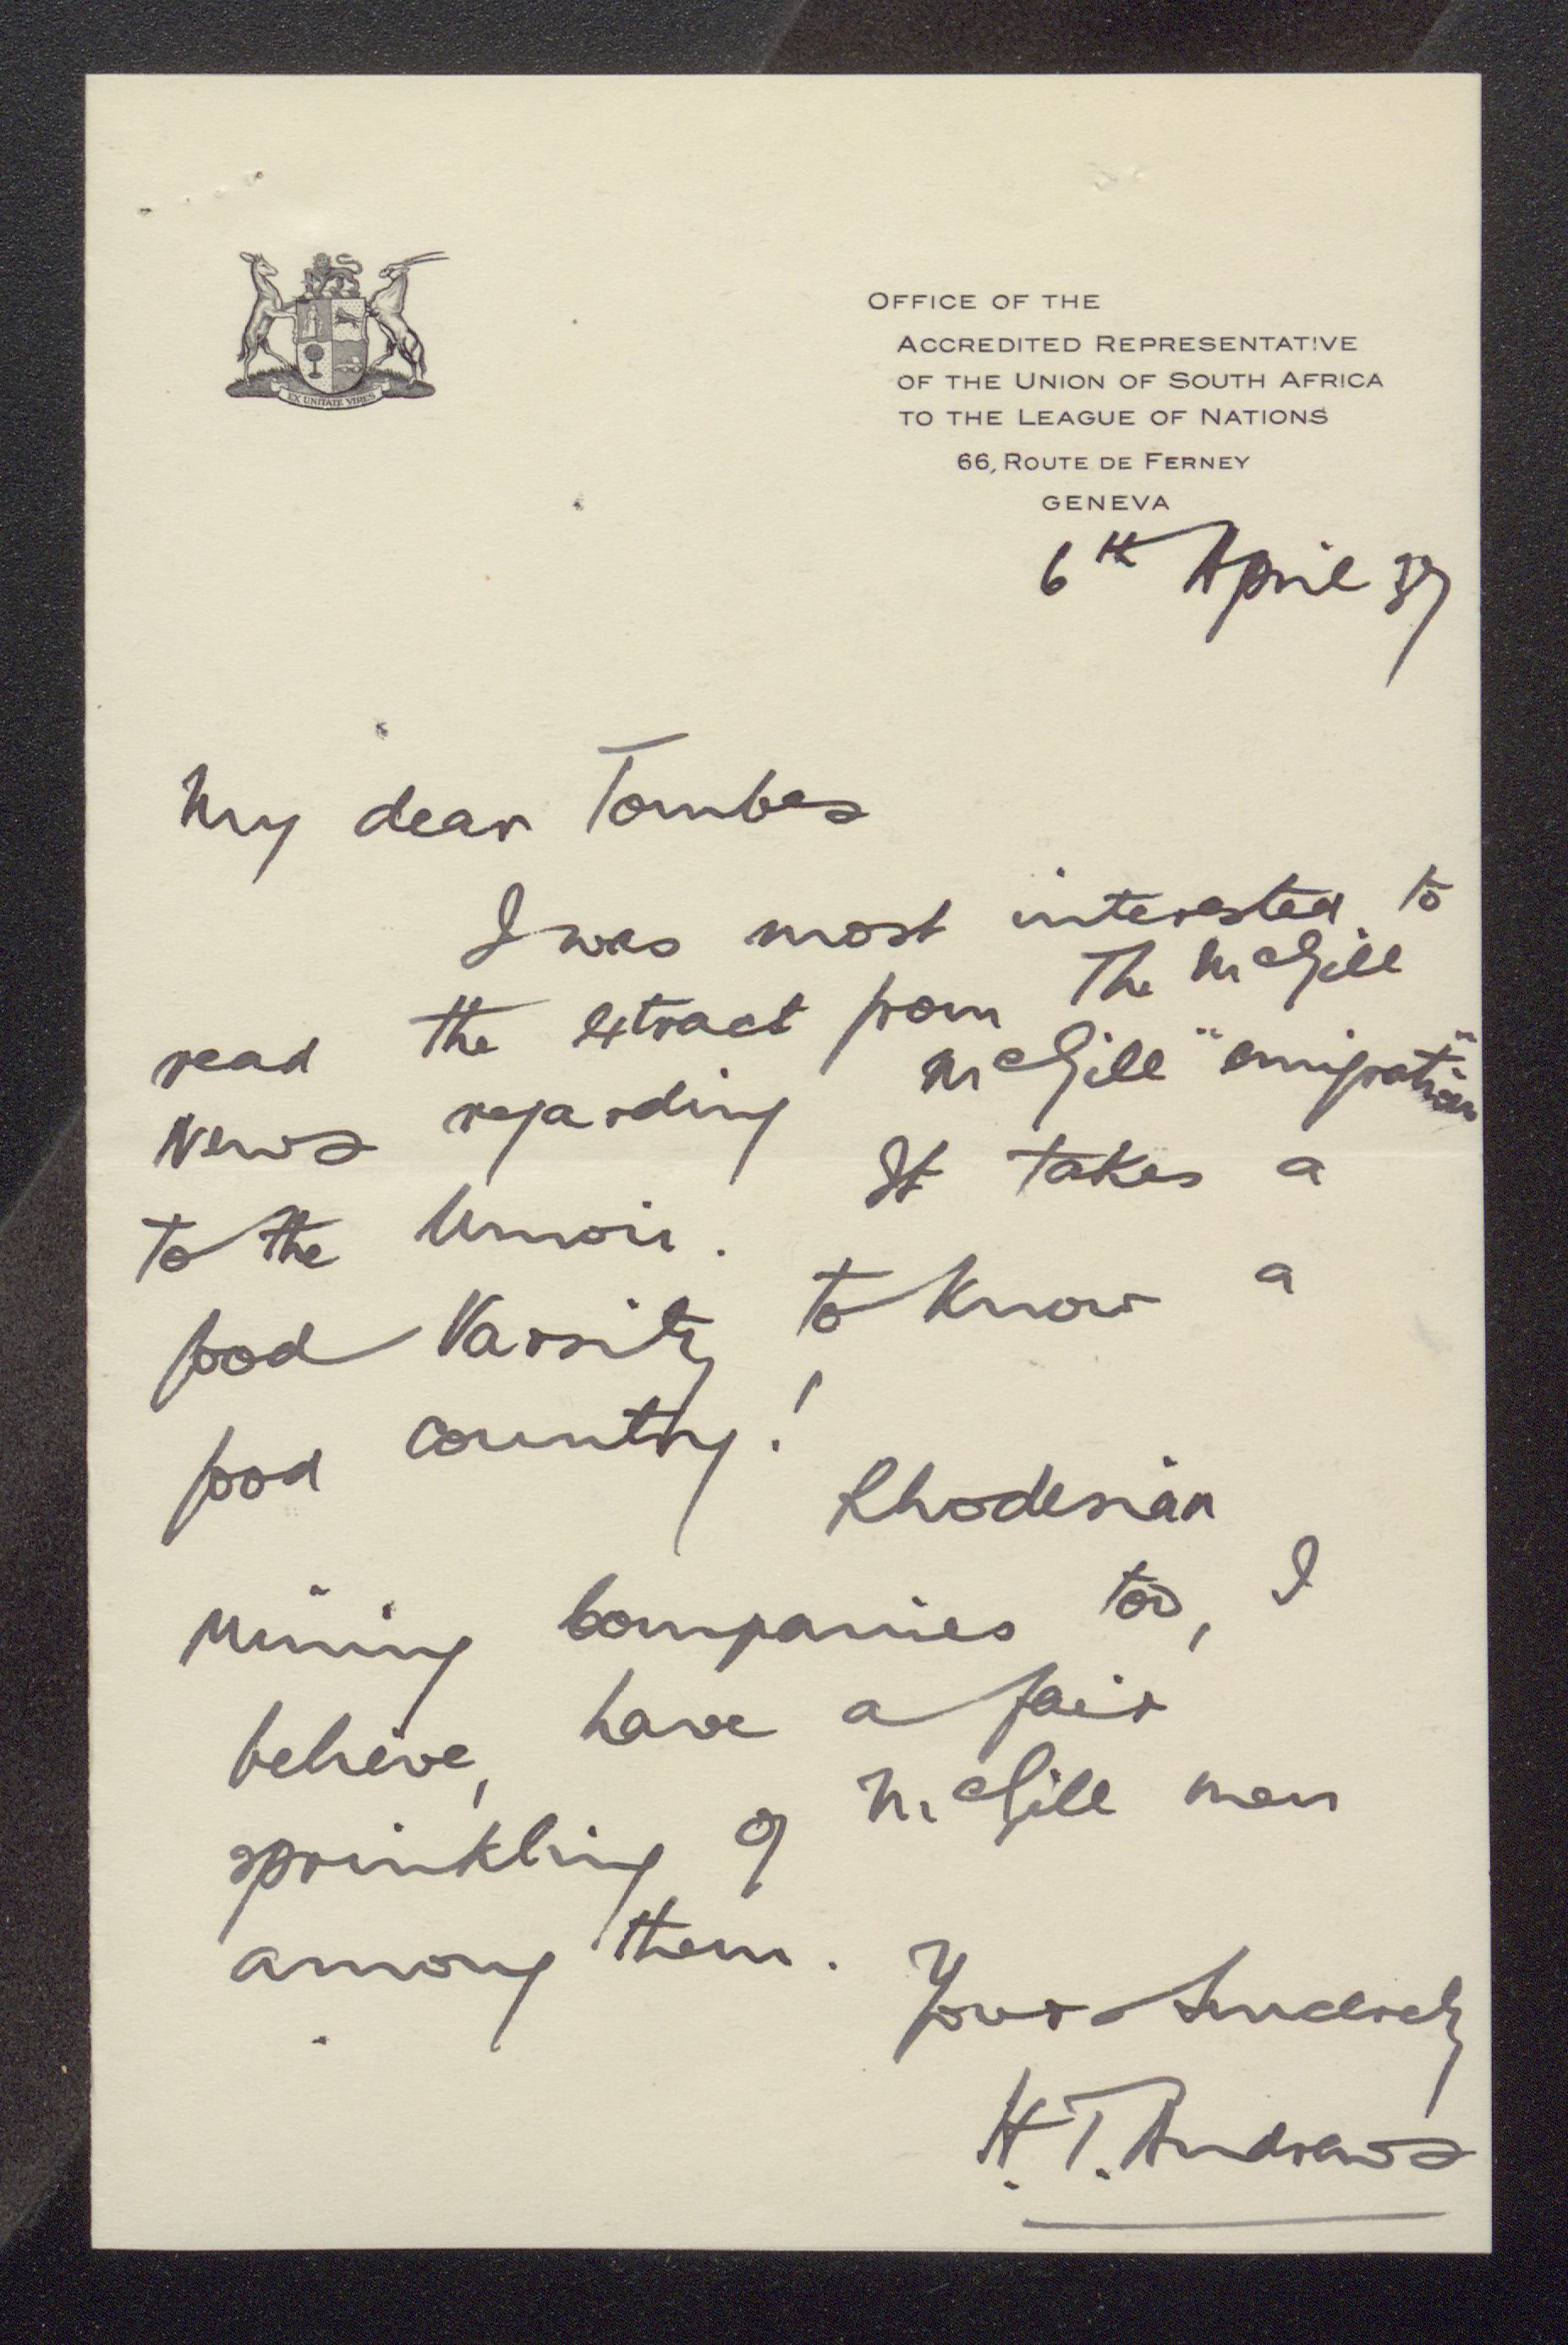 EX UNITATE VIRES
OFFICE OF THE
ACCREDITED REPRESENTATIVE
OF THE UNION OF SOUTH AFRICA
TO THE LEAGUE OF NATIONS
66, ROUTE DE FERNEY
GENEVA
6th April 37
My dear Tombes
I was most interested to
read the extract from The McGill
News regarding McGill "emigration"
to the Union. It takes a
good Varsity to know a
good country!
Rhodesian
Mining Companies too, I
believe, have a fair
sprinkling of McGill men
among them.
Yours Sincerely
H. T. Andrews